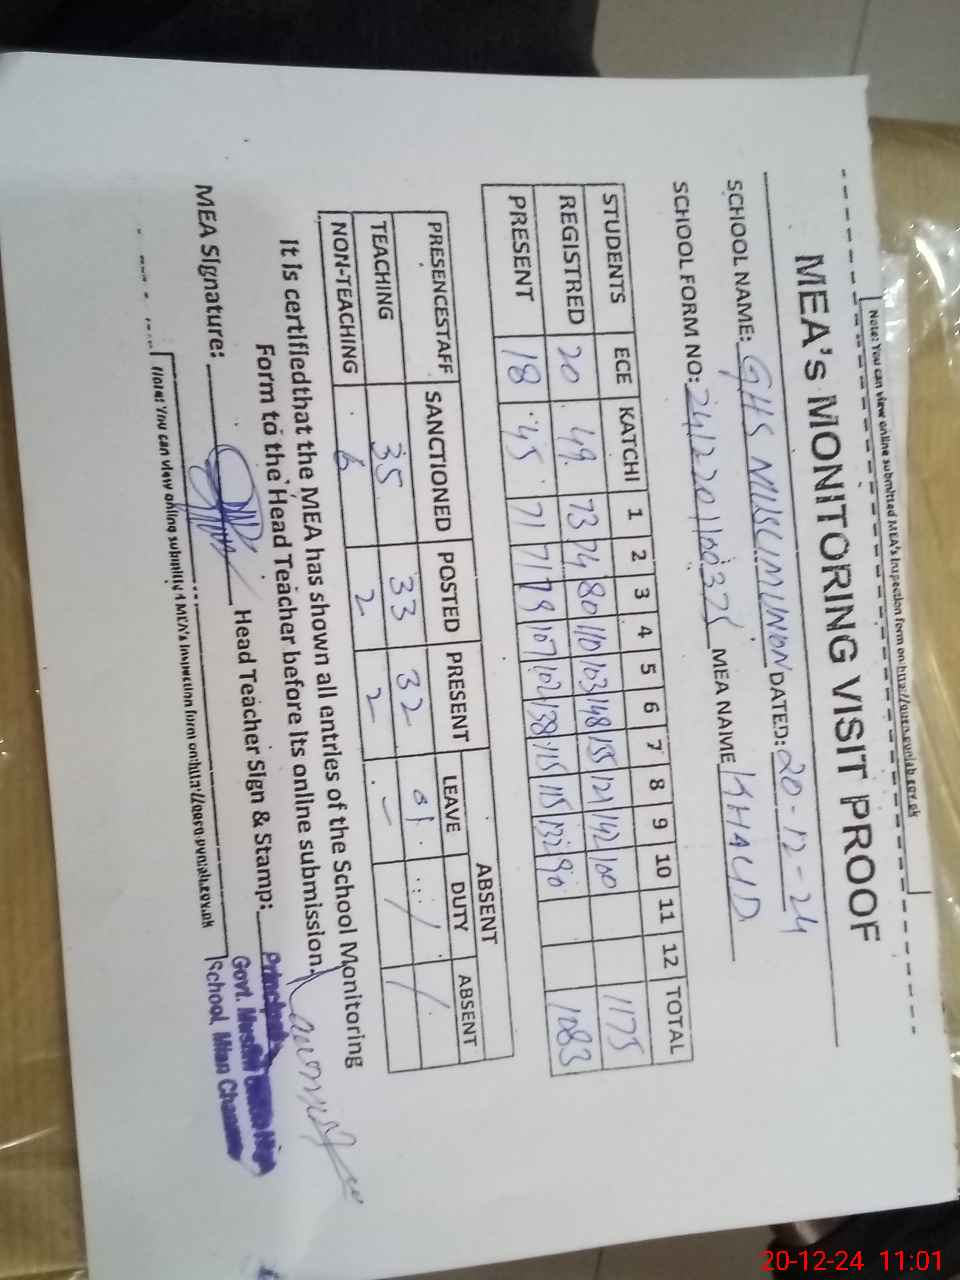 Note: You can view online submitted MEA's Inspection form on: http://quen.punjab.gov.pk
MEA's MONITORING VISIT PROOF
SCHOOL NAME: GHS MUSLIM UNION DATED: 20-12-24
SCHOOL FORM NO: MEA NAME KHALID
STUDENTS ECE KATCHI 1 2 3 4 5 6 7 8 9 10 11 12 TOTAL
REGISTRED 20 49 73 74 80 110 103 148 155 121 142 100 1175
PRESENT 18 45 71 71 79 107 102 138 115 115 132 90 1083
ABSENT
PRESENCESTAFF SANCTIONED POSTED PRESENT LEAVE DUTY ABSENT
TEACHING 35 33 32 01
NON-TEACHING 6 2 2 -
It is certifiedthat the MEA has shown all entries of the School Monitoring
Form to the Head Teacher before its online submission.
MEA Signature: Head Teacher Sign & Stamp:
Principal
Govt. Muslim
School, Mian
Note: You can view online submitted MEA's Inspection form on:
20-12-24 11:01